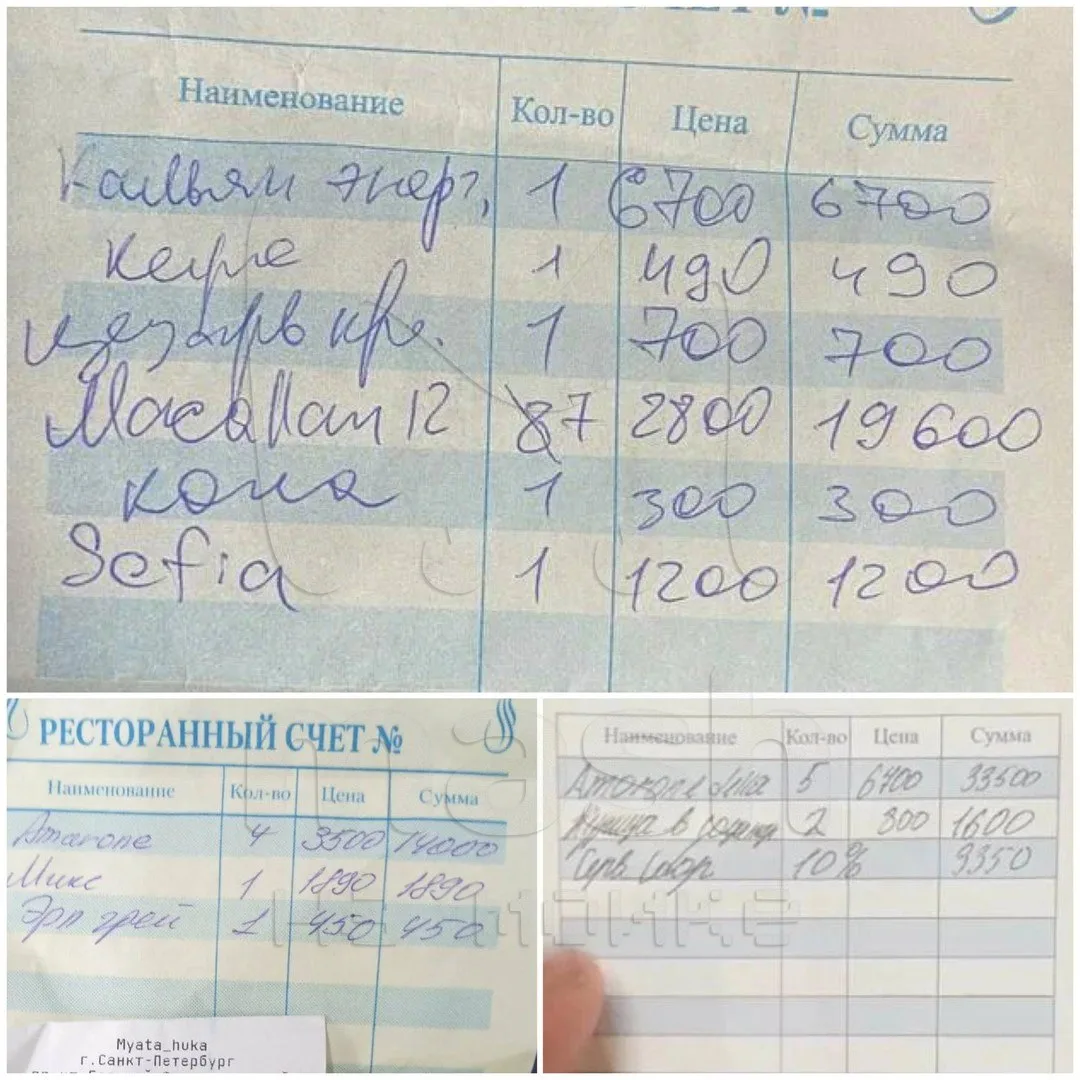 Наименование Кол-во Цена Сумма
Кальян энерг. 1 6700 6700
кепре 1 490 490
цезарь кре. 1 700 700
Macallan 12 7 2800 19600
кола 1 300 300
Sofia 1 1200 1200
РЕСТОРАННЫЙ СЧЕТ №
Наименование Кол-во Цена Сумма
Amarone 4 3500 14000
Микс 1 1890 1890
Эрл грей 1 450 450
Myata_huka
г.Санкт-Петербург
Наименование Кол-во Цена Сумма
5 6700 33500
Курица в 2 800 1600
Серв. сбор 10% 9350
mash
на мойке